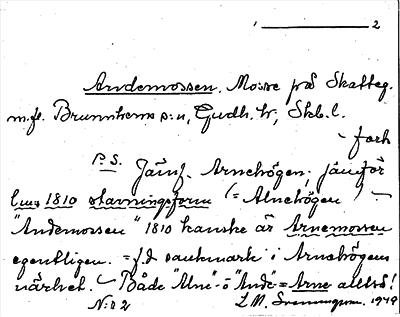 1 ———— 2
Andemossen. Mosse på Skatteg.
m.fl. Brunnhems s:n, Gudh. hr, Skb. l.
– fork
P.S. Jämf. Arnehögen. jämför
1810 stavningsform (= Alnehögen) –
"Andemossen" 1810 kanske är Arnemossen
egentligen. = f.d. sankmark i Arnehögens
närhet. – Både "Alne"- o "Ande" = Arne alltså!
N:o 2 L.M. 1949